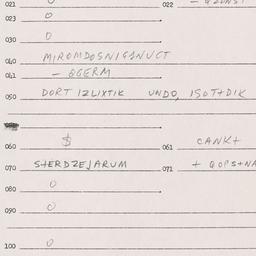 021 0 022
023 0
030 0
040 MIROMDOSNIGANUCT
041 - OGERM
050 DORT IZLIXTIK UNDO, ISOT+DIK
060 $ 061 CANK+
070 S+ERDZEJARUM 071 + QOPS+NA
080 0
090 0
100 0